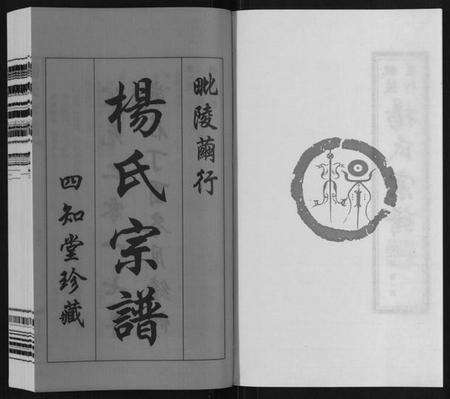 毗陵薾行
楊氏宗譜
四知堂珍藏